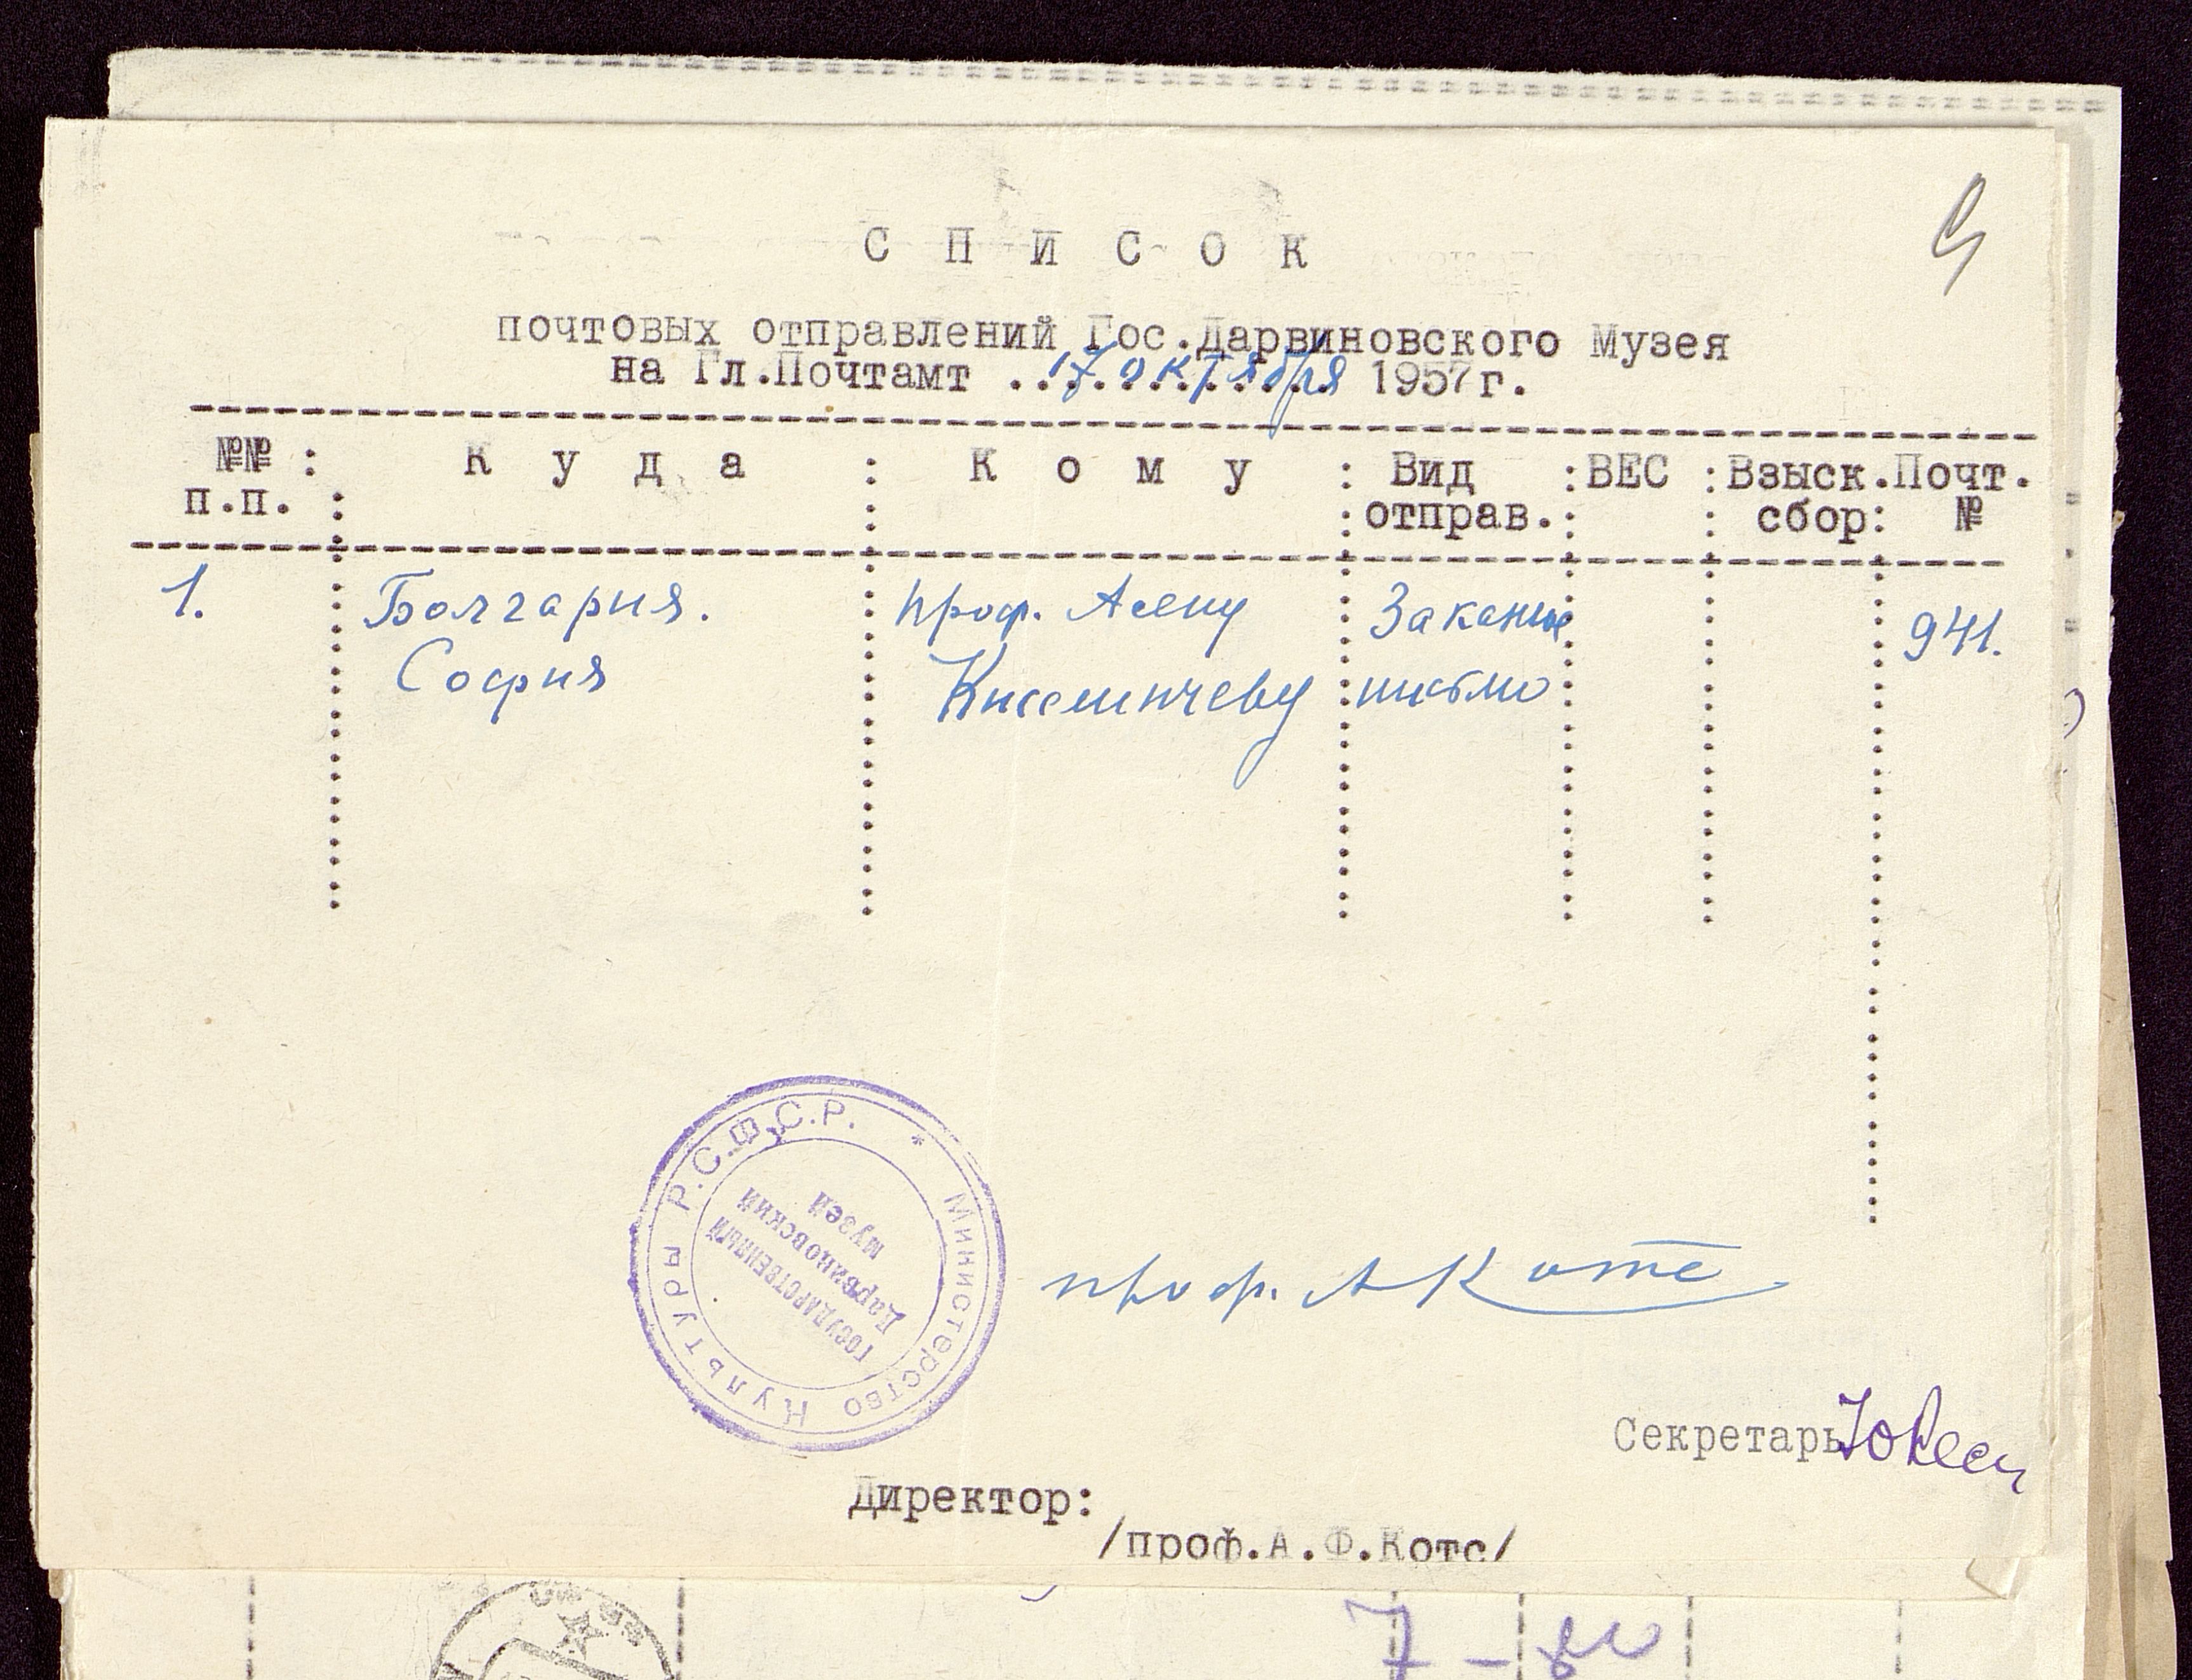 С П И С О К
почтовых отправлений Гос.Дарвиновского Музея
на Гл.Почтамт 17 октября 1957г.
№№ : К у д а : К о м у : Вид :ВЕС :Взыск.Почт.
п.п. : отправ.: сбор: №
1. Болгария. проф. Асену Заказное 941.
София Киссинчеву письмо
Министерство Культуры Р.С.Ф.С.Р. *
ГОСУДАРСТВЕННЫЙ
Дарвиновский
музей
проф. А Котс
Секретарь
Директор:
/проф.А.Ф.Котс/
7 -